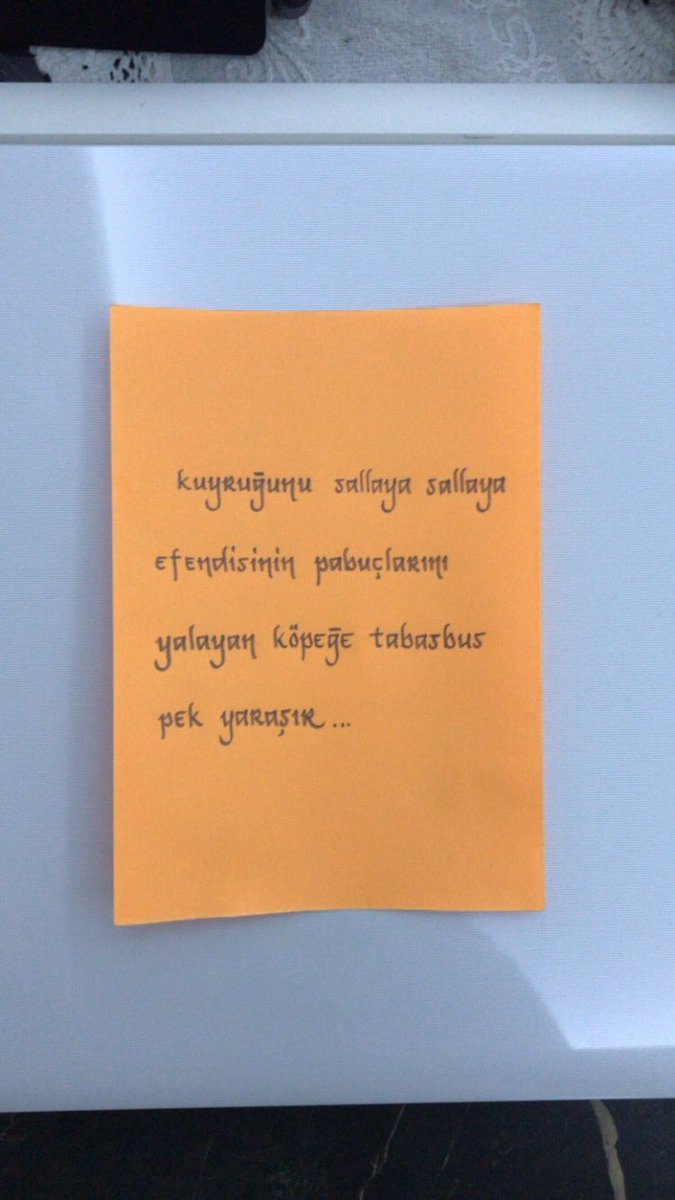 kuyruğunu sallaya sallaya
efendisinin pabuçlarını
yalayan köpeğe tabasbus
pek yaraşır...